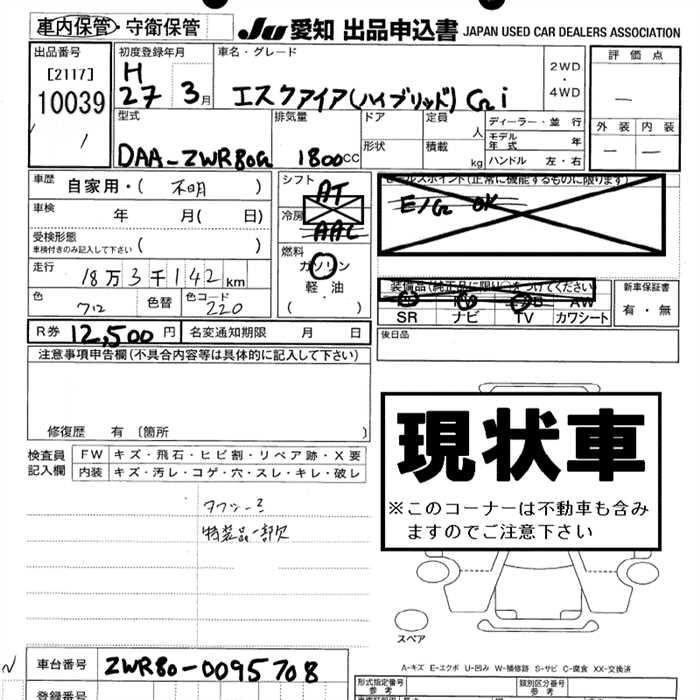 車内保管・守衛保管 JU 愛知 出品申込書 JAPAN USED CAR DEALERS ASSOCIATION
出品番号 初度登録年月 車名・グレード 評価点
[2117] H 2WD
10039 27 3月 エスクァイア(ハイブリッド) Gi ・ 4WD —
型式 排気量 ドア 定員 人 ディーラー・並行 外装 内装
形状 積載 kg モデル年式 年 — —
DAA-ZWR80G 1800cc ハンドル 左・右
車歴 自家用・( 不明 ) シフト AT セールスポイント(正常に機能するものに限ります)
車検 年 月( 日) 冷房 AAC E/G OK
受検形態 車検付きのみ記入して下さい ( )
燃料 ガソリン
走行 18万3千142km 軽・油
( )
装備品(純正品に限り○をつけてください) 新車保証書
色 色替 色コード 220 AW 有・無
SR ナビ TV カワシート
R券 12,500円 名変通知期限 月 日 後日品
注意事項申告欄(不具合内容等は具体的に記入して下さい)
修復歴 有 〔箇所 〕
検査員記入欄 FW キズ・飛石・ヒビ割・リペア跡・X要
内装 キズ・汚レ・コゲ・穴・スレ・キレ・破レ
現状車
※このコーナーは不動車も含み
ますのでご注意下さい
特装品一部欠
スペア
A-キズ E-エクボ U-凹み W-補修跡 S-サビ C-腐食 XX-交換済
車台番号 ZWR80-0095708
型式指定番号 参考 類別区分番号 参考
登録番号